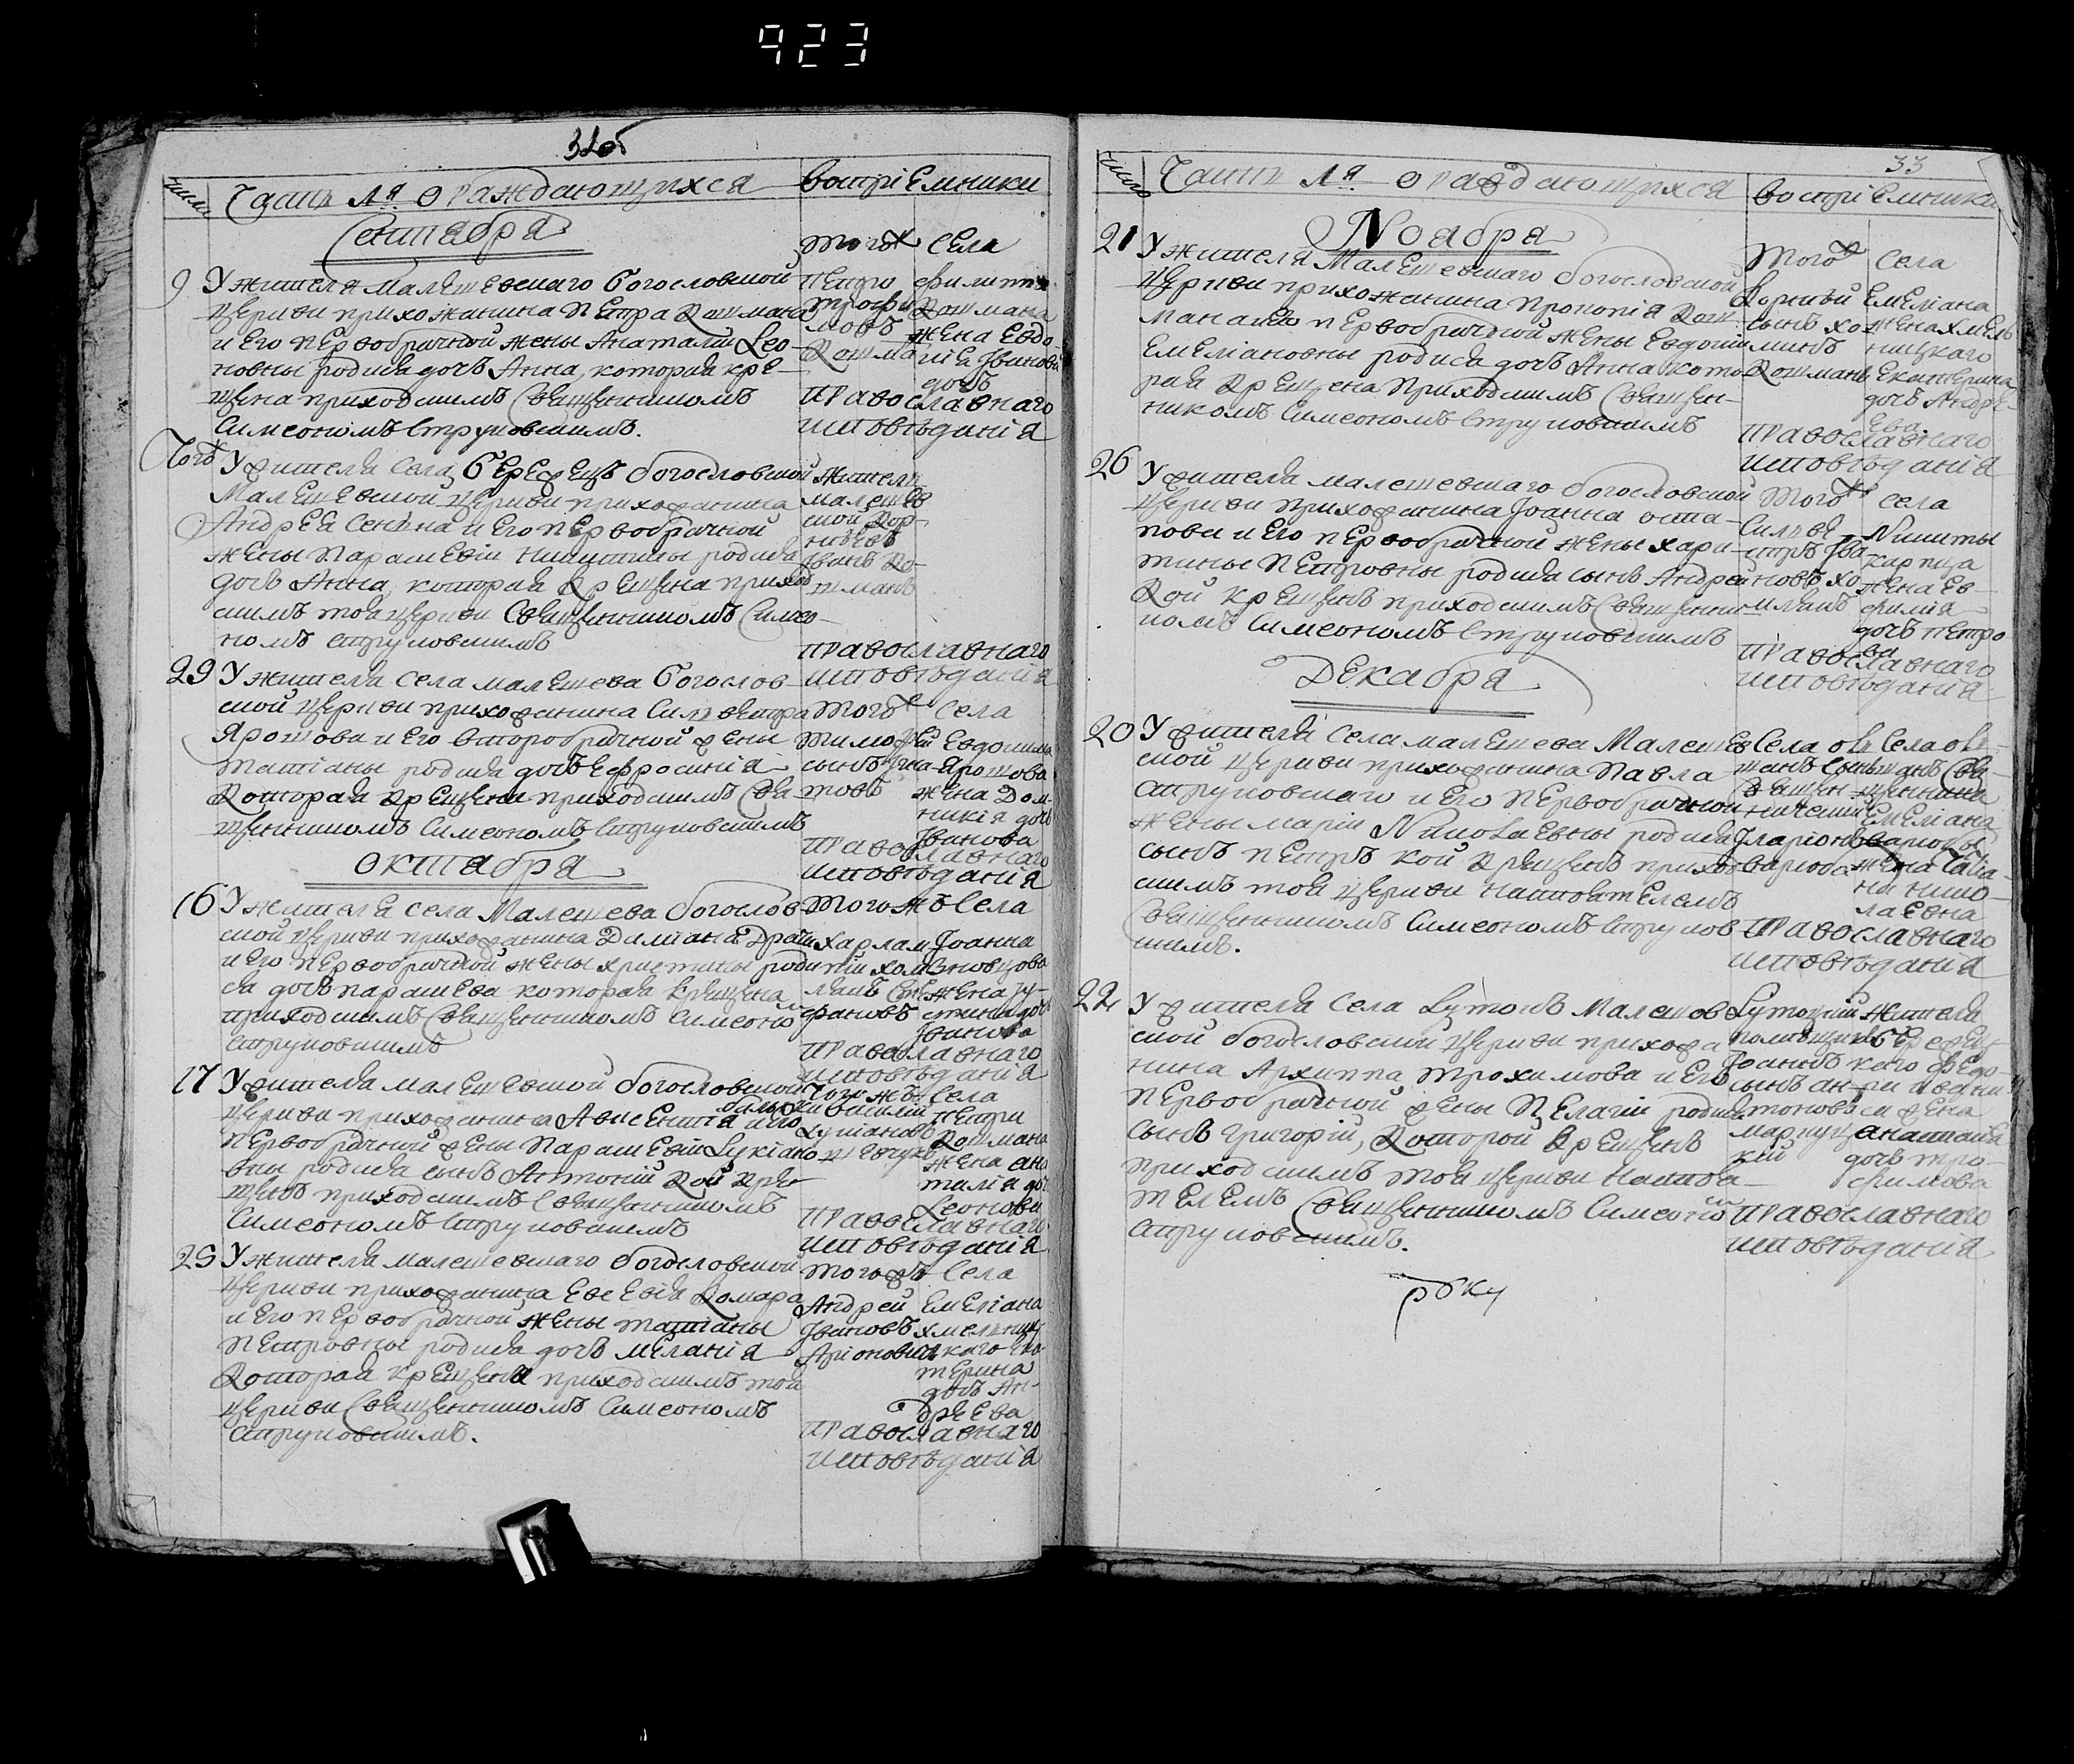 923
32об
число
Часть 1я о раждающихся
воспріемники
Сентября
Того ж Села
9
У жителя Малешевскаго Богословской
церкви прихожанина Петра Кошмана
и его первобрачной жены Анаталіи Лео-
новны родися дочь Анна, которая кре-
щена приходскимъ Священникомъ
Симеономъ Струковскимъ.
Петро Трофимовъ Кошма
Филиппа Кошмана жена Евдо-
кіе Іванова дочь
Православнаго
исповѣданія
Того ж
У жителя села Бережецъ Богословской
Малешевской церкви прихожанина
Андрея Сенюка и его первобрачной
жены Параскевіи Никитины родися
дочь Анна, которая крещена приход-
скимъ той церкви Священникомъ Симео-
номъ Струковскимъ
житель
малешев
ской Кор-
нѣевъ
Іванъ Ко-
шманъ
Православнаго
исповѣданія
29
У жителя села малешева Богослов-
ской церкви прихожанина Силвестра
Ярошова и его второбрачной жены
татіаны родися дочь Ефросинія
которая крещена приходскимъ Свя-
щенникомъ Симеономъ Струковскимъ
Того ж Села
Тимофей
сынъ
Евдокима
Ярошова
жена Дом-
никія дочь
Іванова
Православнаго
исповѣданія
Октября
16
У жителя села Малешева Богослов-
ской церкви прихожанина Даміана
и его первобрачной жены христины роди-
ся дочь параскева которая крещена
приходскимъ Священникомъ Симеоно
Струковскимъ
Того жъ Села
Харлам
Іоанна
жена Іу-
стина дочь
Іванова
Православнаго
исповѣданія
17
У жителя малешевской Богословской
церкви прихожанина Авксентія и его
первобрачной жены Параскевіи Лукіано
вны родися сынъ Антоній кой кре-
щенъ приходскимъ Священникомъ
Симеономъ Струковскимъ
Того жъ Села
Василій
Лукіановъ
Петра
Кошмана
жена ана
талія дочь
Леонова
Православнаго
исповѣданія
25
У жителя малешевскаго Богословской
церкви прихожанина Евсевія Комара
и его первобрачной жены татіаны
Петровны родися дочь Меланія
Которая крещена приходскимъ той
церкви Священникомъ Симеономъ
Струковскимъ.
Того жъ Села
Андрей
Івановъ
Емеліана
хмельниц-
каго Ека-
терина
дочь Ан-
дреева
Православнаго
исповѣданія
33
число
Часть 1я о раждающихся
воспріемники
Ноября
21
У жителя Малешевскаго Богословской
церкви прихожанина Прокопія Кош-
мана и его первобрачной жены Евдокіи
Емеліановны родися дочь Анна кото-
рая крещена Приходскимъ Священ-
никомъ Симеономъ Струковскимъ
Того ж Села
Корнѣй
сынъ
Кошманъ
Емеліана
жена хмель
ницкаго
Екатерина
дочь Андре-
ева
Православнаго
исповѣданія
26
У жителя малешевскаго Богословской
церкви прихожанина Іоанна оста-
пова и его первобрачной жены хари-
тины Петровны родися сынъ Андрей
Кой крещенъ приходскимъ Священни-
комъ Симеономъ Струковскимъ
Того ж села
Силве-
стръ Іва-
новъ
Никиты
карпца
жена Ев-
фимія
дочь петро
ва
Православнаго
исповѣданія
Декабря
20
У жителя села малешева Малешев
ской церкви прихожанина Павла
Струковскаго и его первобрачной
жены Маріи Николаевны родися
сынъ петръ кой крещенъ приход-
скимъ той церкви настоятелемъ
Священникомъ Симеономъ Струков-
скимъ.
Села
Священ-
ническій
Иларіонъ
Села
Емеліана
жена Татіа-
на нико-
лаевна
Православнаго
исповѣданія
22
У жителя села Лутокъ Малешов
ской Богословской церкви прихожа
нина Архиппа Трохимова и его
первобрачной жены Пелагіи родися
сынъ Григорій, которой крещенъ
приходскимъ той церкви Настоя-
телемъ Священникомъ Симеономъ
Струковскимъ.
помѣщикъ
Іоаннъ
сынъ ан-
тоновъ
жителя
Бережец-
каго
жена
анастасія
дочь тро-
фимова
Православнаго
исповѣданія